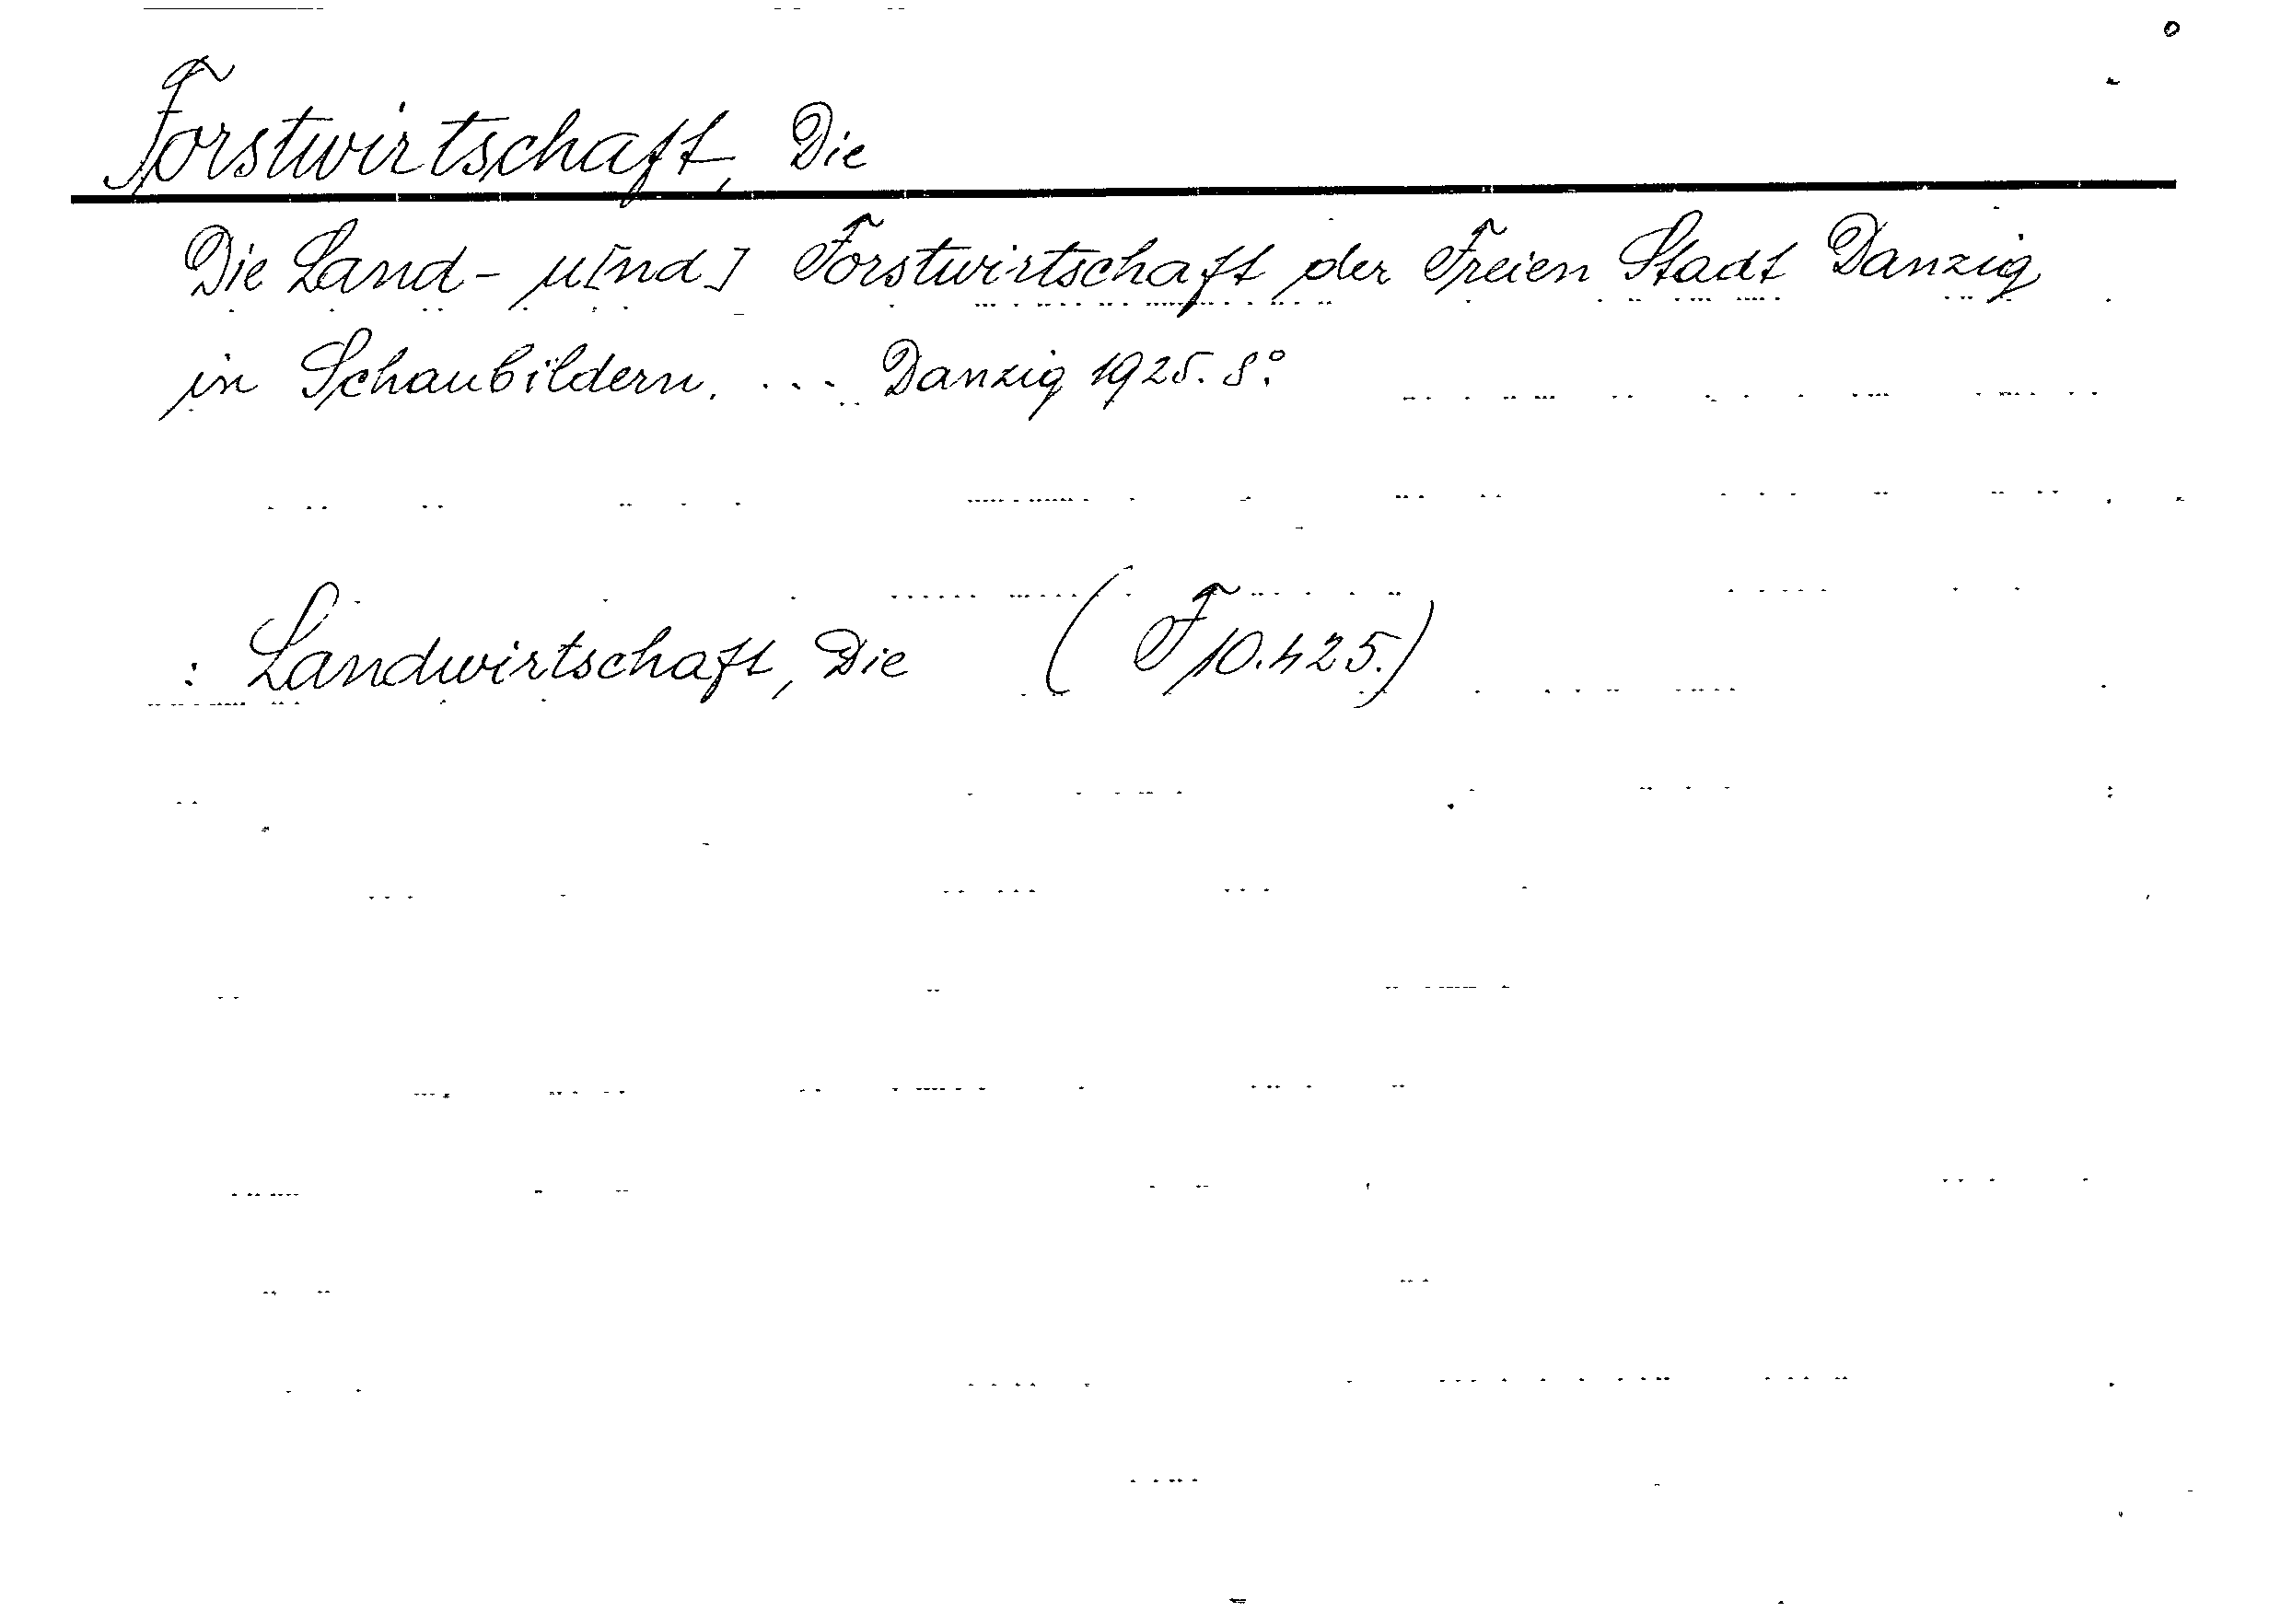 Forstwirtschaft, Die
Die Land- u[nd] Forstwirtschaft der Freien Stadt Danzig
in Schaubildern. ... Danzig 1925. 8°.
: Landwirtschaft, Die ( F 10.425.)